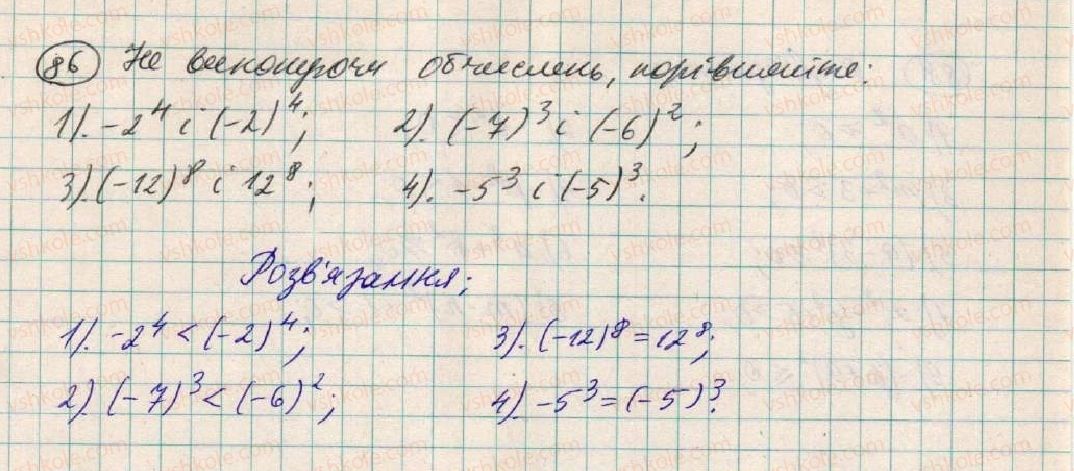 86 Не виконуючи обчислень, порівняйте:
1). -2⁴ і (-2)⁴; 2). (-7)³ і (-6)²;
3). (-12)⁸ і 12⁸; 4). -5³ і (-5)³.
Розв'язання;
1). -2⁴ < (-2)⁴; 3). (-12)⁸ = 12⁸;
2). (-7)³ < (-6)²; 4). -5³ = (-5)³.
vshkole.com